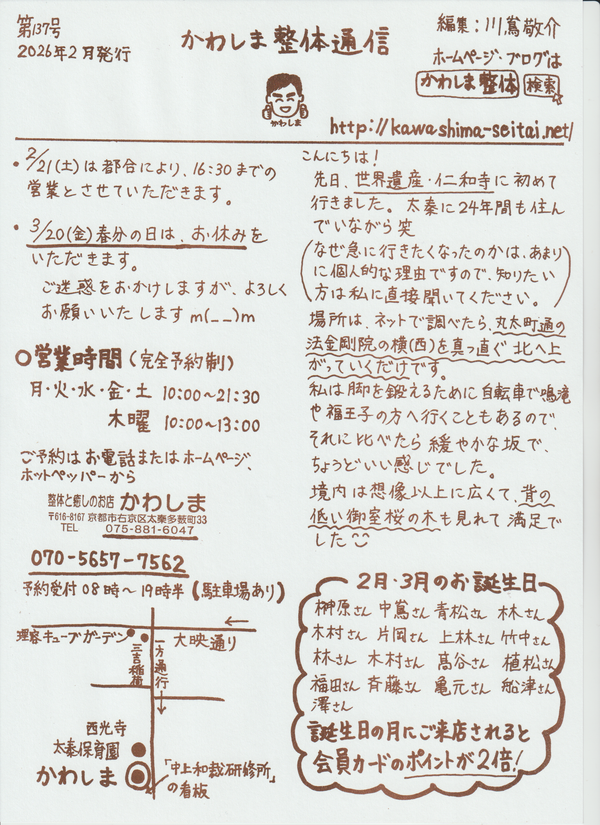 第137号
2026年2月発行
かわしま整体通信
編集：川嶌敬介
ホームページ・ブログは
かわしま整体 検索
かわしま
http://kawashima-seitai.net/
・2/21(土)は都合により、16:30までの
営業とさせていただきます。
・3/20(金)春分の日は、お休みを
いただきます。
ご迷惑をおかけしますが、よろしく
お願いいたしますm(__)m
○営業時間(完全予約制)
月・火・水・金・土 10:00〜21:30
木曜 10:00〜13:00
ご予約はお電話またはホームページ、
ホットペッパーから
整体と癒しのお店 かわしま
〒616-8167 京都市右京区太秦多薮町33
TEL 075-881-6047
070-5657-7562
予約受付 08時〜19時半(駐車場あり)
理容キューブガーデン
大映通り
三吉稲荷
一方通行
西光寺
太秦保育園
かわしま
「中上和裁研修所」
の看板
こんにちは！
先日、世界遺産・仁和寺に初めて
行きました。太秦に24年間も住ん
でいながら笑
(なぜ急に行きたくなったのかは、あまり
に個人的な理由ですので、知りたい
方は私に直接聞いてください。)
場所は、ネットで調べたら、丸太町通の
法金剛院の横(西)を真っ直ぐ北へ上
がっていくだけです。
私は脚を鍛えるために自転車で鳴滝
や福王子の方へ行くこともあるので、
それに比べたら緩やかな坂で、
ちょうどいい感じでした。
境内は想像以上に広くて、背の
低い御室桜の木も見れて満足で
した
2月・3月のお誕生日
榊原さん 中嶌さん 青松さん 林さん
木村さん 片岡さん 上林さん 竹中さん
林さん 木村さん 髙谷さん 植松さん
福田さん 斉藤さん 亀元さん 船津さん
澤さん
誕生日の月にご来店されると
会員カードのポイントが2倍！